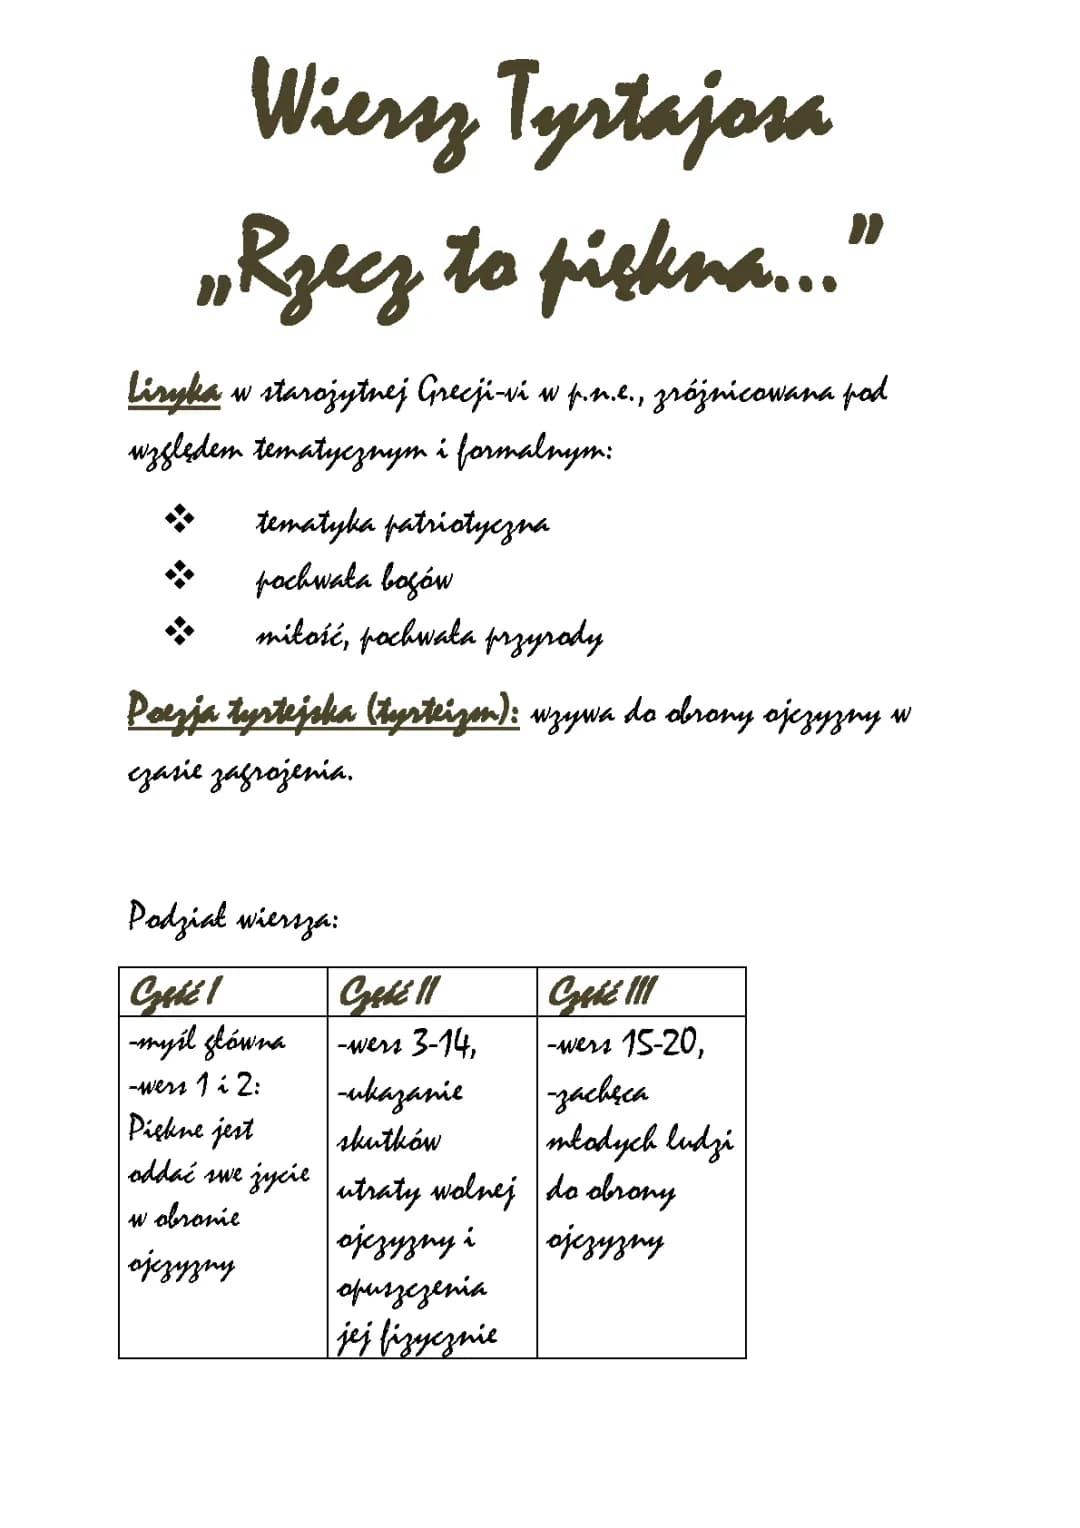 Wiersz Tyrtajosa
„Rzecz to piękna..."
Liryka w starożytnej Grecji-vi w p.n.e., zróżnicowana pod
względem tematycznym i formalnym:
❖ tematyka patriotyczna
❖ pochwała bogów
❖ miłość, pochwała przyrody
Poezja tyrtejska (tyrteizm): wzywa do obrony ojczyzny w
czasie zagrożenia.
Podział wiersza:
Część I
-myśl główna
-wers 1 i 2:
Piękne jest
oddać swe życie
w obronie
ojczyzny
Część II
-wers 3-14,
-ukazanie
skutków
utraty wolnej
ojczyzny i
opuszczenia
jej fizycznie
Część III
-wers 15-20,
-zachęca
młodych ludzi
do obrony
ojczyzny